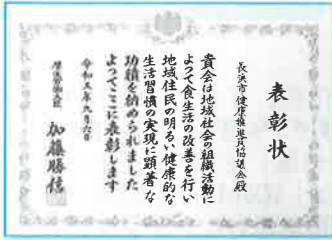 表彰状
長浜市健康推進員協議会殿
貴会は地域社会の組織活動に
よって食生活の改善を行い
地域住民の明るい健康的な
生活習慣の実現に顕著な
功績を納められました
よってここに表彰します
令和五年九月六日
厚生労働大臣
加藤勝信